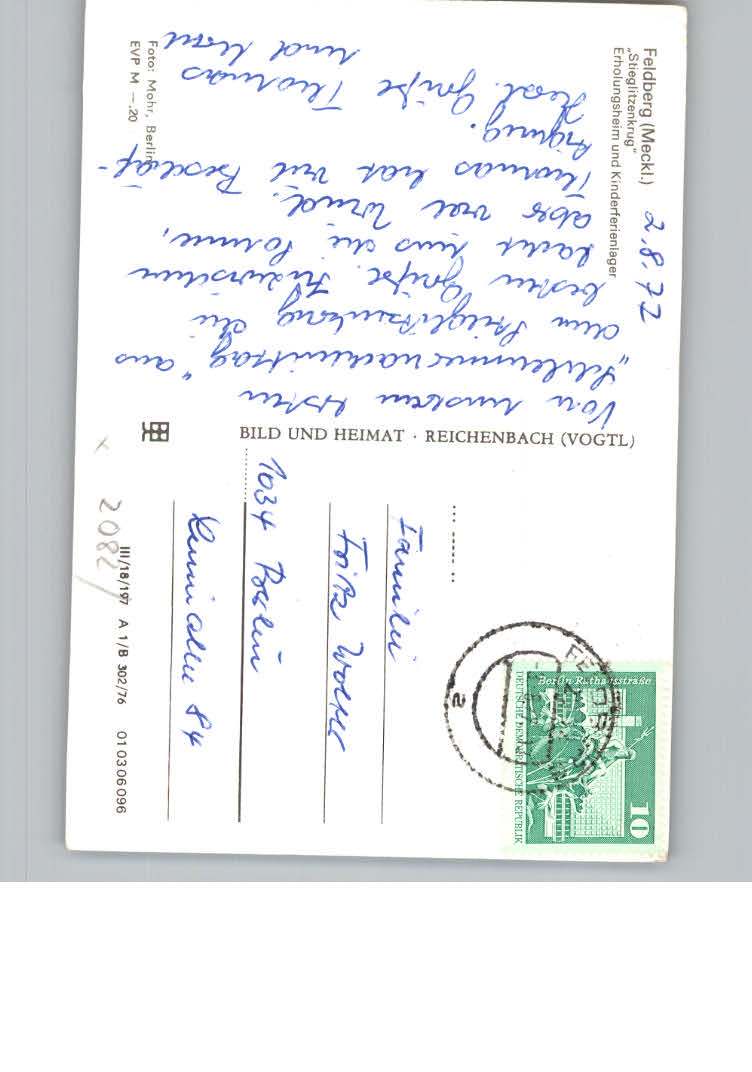 Feldberg (Meckl.)
„Stieglitzenkrug“
Erholungsheim und Kinderferienlager
2.8.77
Von unserem ersten
„Schlemmernachmittag“ aus
dem Stieglitzenkrug die
besten Grüße. Inzwischen
lacht uns die Sonne,
aber viel Wind.
Thomas hat viel Beschäf-
tigung.
Herzl. Grüße Thomas
und
Foto: Mohr, Berlin
EVP M –.20
BILD UND HEIMAT · REICHENBACH (VOGTL)
Familie
Fritz
1034 Berlin
Leninallee 84
2082
III/18/197 A 1/B 302/76 01 03 06 096
Berlin Rathausstraße
DEUTSCHE DEMOKRATISCHE REPUBLIK
10